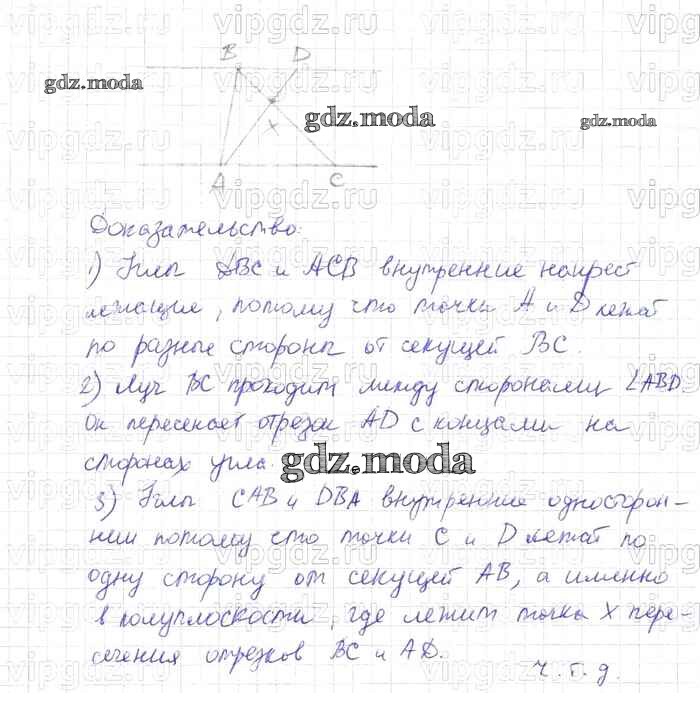 B D
gdz.moda
gdz.moda
gdz.moda
X
A C
Доказательство:
1) Углы DBC и ACB внутренние накрест
лежащие, потому что точки A и D лежат
по разные стороны от секущей BC.
2) Луч BC проходит между сторонами ∠ABD.
Он пересекает отрезок AD с концами на
сторонах угла.
gdz.moda
3) Углы CAB и DBA внутренние односторон-
ними потому что точки C и D лежат по
одну сторону от секущей AB, а именно
в полуплоскости, где лежит точка X пере-
сечения отрезков BC и AD.
ч.т.д.